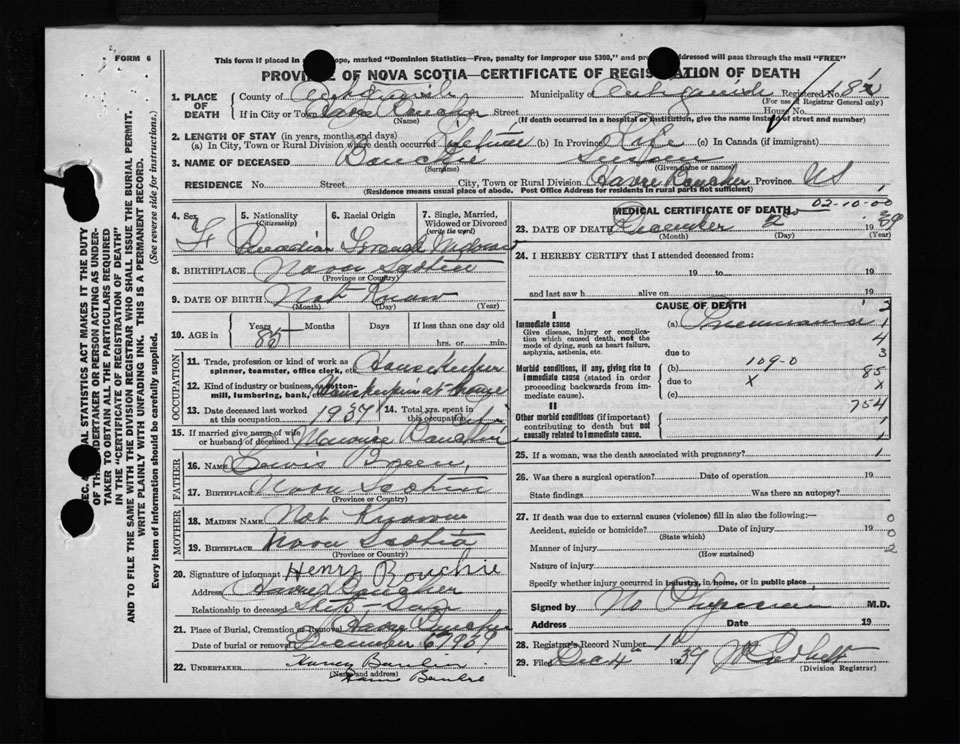 FORM 6
This form if placed in ope, marked "Dominion Statistics—Free, penalty for improper use $300," and addressed will pass through the mail "FREE"
PROVINCE OF NOVA SCOTIA—CERTIFICATE OF REGISTRATION OF DEATH
1. PLACE OF DEATH
County of Antigonish Municipality of Antigonish Registered No.
(For use of Registrar General only)
If in City or Town Havre Boucher Street House No.
(Name) (If death occurred in a hospital or institution, give the name instead of street and number)
2. LENGTH OF STAY (in years, months and days)
(a) In City, Town or Rural Division where death occurred Lifetime (b) In Province Life (c) In Canada (if immigrant)
3. NAME OF DECEASED Bouchie Susan
(Surname) (Given name or names)
RESIDENCE No. Street City, Town or Rural Division Havre Boucher Province NS
(Residence means usual place of abode. Post Office Address for residents in rural parts not sufficient)
4. Sex 5. Nationality (Citizenship) 6. Racial Origin 7. Single, Married, Widowed or Divorced (write the word)
F Canadian French Widow
8. BIRTHPLACE Nova Scotia
(Province or Country)
9. DATE OF BIRTH Not Know
(Month) (Day) (Year)
10. AGE in Years Months Days If less than one day old
85 hrs. or min.
OCCUPATION
11. Trade, profession or kind of work as spinner, teamster, office clerk, etc. House Keeper
12. Kind of industry or business, as cotton-mill, lumbering, bank, Housekeeping at House
13. Date deceased last worked at this occupation 1937
14. Total yrs. spent in this occupation Life
15. If married give name of wife or husband of deceased Bouchie
FATHER
16. Name Lewis
17. Birthplace Nova Scotia
(Province or Country)
MOTHER
18. Maiden Name Not Known
19. Birthplace Nova Scotia
(Province or Country)
20. Signature of informant Henry Bouchie
Address Havre Boucher
Relationship to deceased Step-Son
21. Place of Burial, Cremation or Removal Havre Boucher
Date of burial or removal December 1939
22. UNDERTAKER
(Name and address)
MEDICAL CERTIFICATE OF DEATH
02-10-00
23. DATE OF DEATH December 2nd 1939
(Month) (Day) (Year)
24. I HEREBY CERTIFY that I attended deceased from:
19 to 19
and last saw h alive on 19
CAUSE OF DEATH
I
Immediate cause
Give disease, injury or complication which caused death, not the mode of dying, such as heart failure, asphyxia, asthenia, etc.
(a) Pneumonia
due to
Morbid conditions, if any, giving rise to immediate cause (stated in order proceeding backwards from immediate cause).
(b) 109-0
due to X
(c)
II
Other morbid conditions (important) contributing to death but not causally related to immediate cause.
3
1
4
3
85
x
754
1
1
25. If a woman, was the death associated with pregnancy? 1
26. Was there a surgical operation? Date of operation 19
State findings Was there an autopsy?
27. If death was due to external causes (violence) fill in also the following:—
Accident, suicide or homicide? Date of injury 19
(State which)
Manner of injury
(How sustained)
Nature of injury
0
0
2
Specify whether injury occurred in industry, in home, or in public place
Signed by No Physician M.D.
Address Date 19
28. Registrar's Record Number
29. Filed Dec 4th 1939
(Division Registrar)
AL STATISTICS ACT MAKES IT THE DUTY
OF THE UNDERTAKER OR PERSON ACTING AS UNDERTAKER TO OBTAIN ALL THE PARTICULARS REQUIRED
IN THE "CERTIFICATE OF REGISTRATION OF DEATH"
AND TO FILE THE SAME WITH THE DIVISION REGISTRAR WHO SHALL ISSUE THE BURIAL PERMIT.
WRITE PLAINLY WITH UNFADING INK. THIS IS A PERMANENT RECORD.
Every item of Information should be carefully supplied. (See reverse side for instructions.)